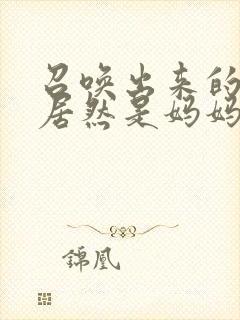 召唤出来的
居然是妈妈
錦凰